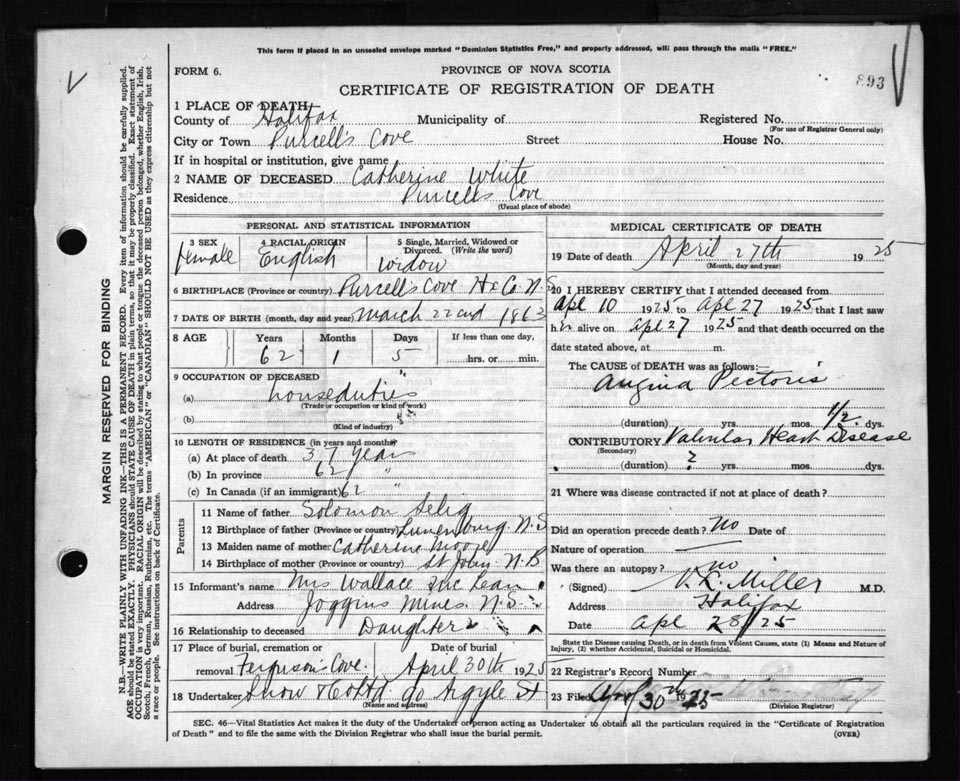 This form if placed in an unsealed envelope marked "Dominion Statistics Free," and properly addressed, will pass through the mails "FREE."
FORM 6.
PROVINCE OF NOVA SCOTIA
893
CERTIFICATE OF REGISTRATION OF DEATH
1 PLACE OF DEATH
County of Halifax Municipality of Registered No.
(For use of Registrar General only)
City or Town Purcell's Cove Street House No.
If in hospital or institution, give name
2 NAME OF DECEASED Catherine White
Residence Purcells Cove
(Usual place of abode)
PERSONAL AND STATISTICAL INFORMATION
3 SEX 4 RACIAL ORIGIN 5 Single, Married, Widowed or Divorced. (Write the word)
female English widow
6 BIRTHPLACE (Province or country) Purcell's Cove Hx Co. N.S
7 DATE OF BIRTH (month, day and year) March 22nd 1863
8 AGE Years Months Days If less than one day,
62 1 5 hrs. or min.
9 OCCUPATION OF DECEASED
(a) houseduties
(Trade or occupation or kind of work)
(b)
(Kind of industry)
10 LENGTH OF RESIDENCE (in years and months)
(a) At place of death 37 Years
(b) In province 62 "
(c) In Canada (if an immigrant) 62 "
Parents
11 Name of father Solomon Selig
12 Birthplace of father (Province or country) Lunenburg. N.S
13 Maiden name of mother Catherine Moore
14 Birthplace of mother (Province or country) St John N.B
15 Informant's name Mrs Wallace McLean
Address Joggins Mines. N.S.
16 Relationship to deceased Daughter
17 Place of burial, cremation or Date of burial
removal Ferguson's Cove. April 30th 1925
18 Undertaker Snow & Co Ltd 90 Argyle St
(Name and address)
MEDICAL CERTIFICATE OF DEATH
19 Date of death April 27th 1925
(Month, day and year)
20 I HEREBY CERTIFY that I attended deceased from
Apl 10 1925 to Apl 27 1925 that I last saw
her alive on Apl 27 1925 and that death occurred on the
date stated above, at m.
The CAUSE OF DEATH was as follows:
Angina Pectoris
(duration) yrs. mos. 1/2 dys.
CONTRIBUTORY Valvular Heart Disease
(Secondary)
(duration) ? yrs. mos. dys.
21 Where was disease contracted if not at place of death?
Did an operation precede death? No Date of
Nature of operation
Was there an autopsy? no
(Signed) V. L. Miller M.D.
Address Halifax
Date Apl 28/25
State the Disease causing Death, or in death from Violent Causes, state (1) Means and Nature of Injury, (2) whether Accidental, Suicidal or Homicidal.
22 Registrar's Record Number
23 Filed Apl 30th 1925
(Division Registrar)
SEC. 46—Vital Statistics Act makes it the duty of the Undertaker or person acting as Undertaker to obtain all the particulars required in the "Certificate of Registration
of Death" and to file the same with the Division Registrar who shall issue the burial permit. (OVER)
MARGIN RESERVED FOR BINDING
N.B.—WRITE PLAINLY WITH UNFADING INK—THIS IS A PERMANENT RECORD. Every item of information should be carefully supplied.
AGE should be stated EXACTLY. PHYSICIANS should STATE CAUSE OF DEATH in plain terms, so that it may be properly classified. Exact statement of
OCCUPATION is very important. RACIAL ORIGIN will be described by stating to what people or tongue the deceased person belonged, whether English, Irish,
Scotch, French, German, Russian, Ruthenian, etc. The terms "AMERICAN" or "CANADIAN" SHOULD NOT BE USED as they express citizenship but not
a race or people. See instructions on back of Certificate.